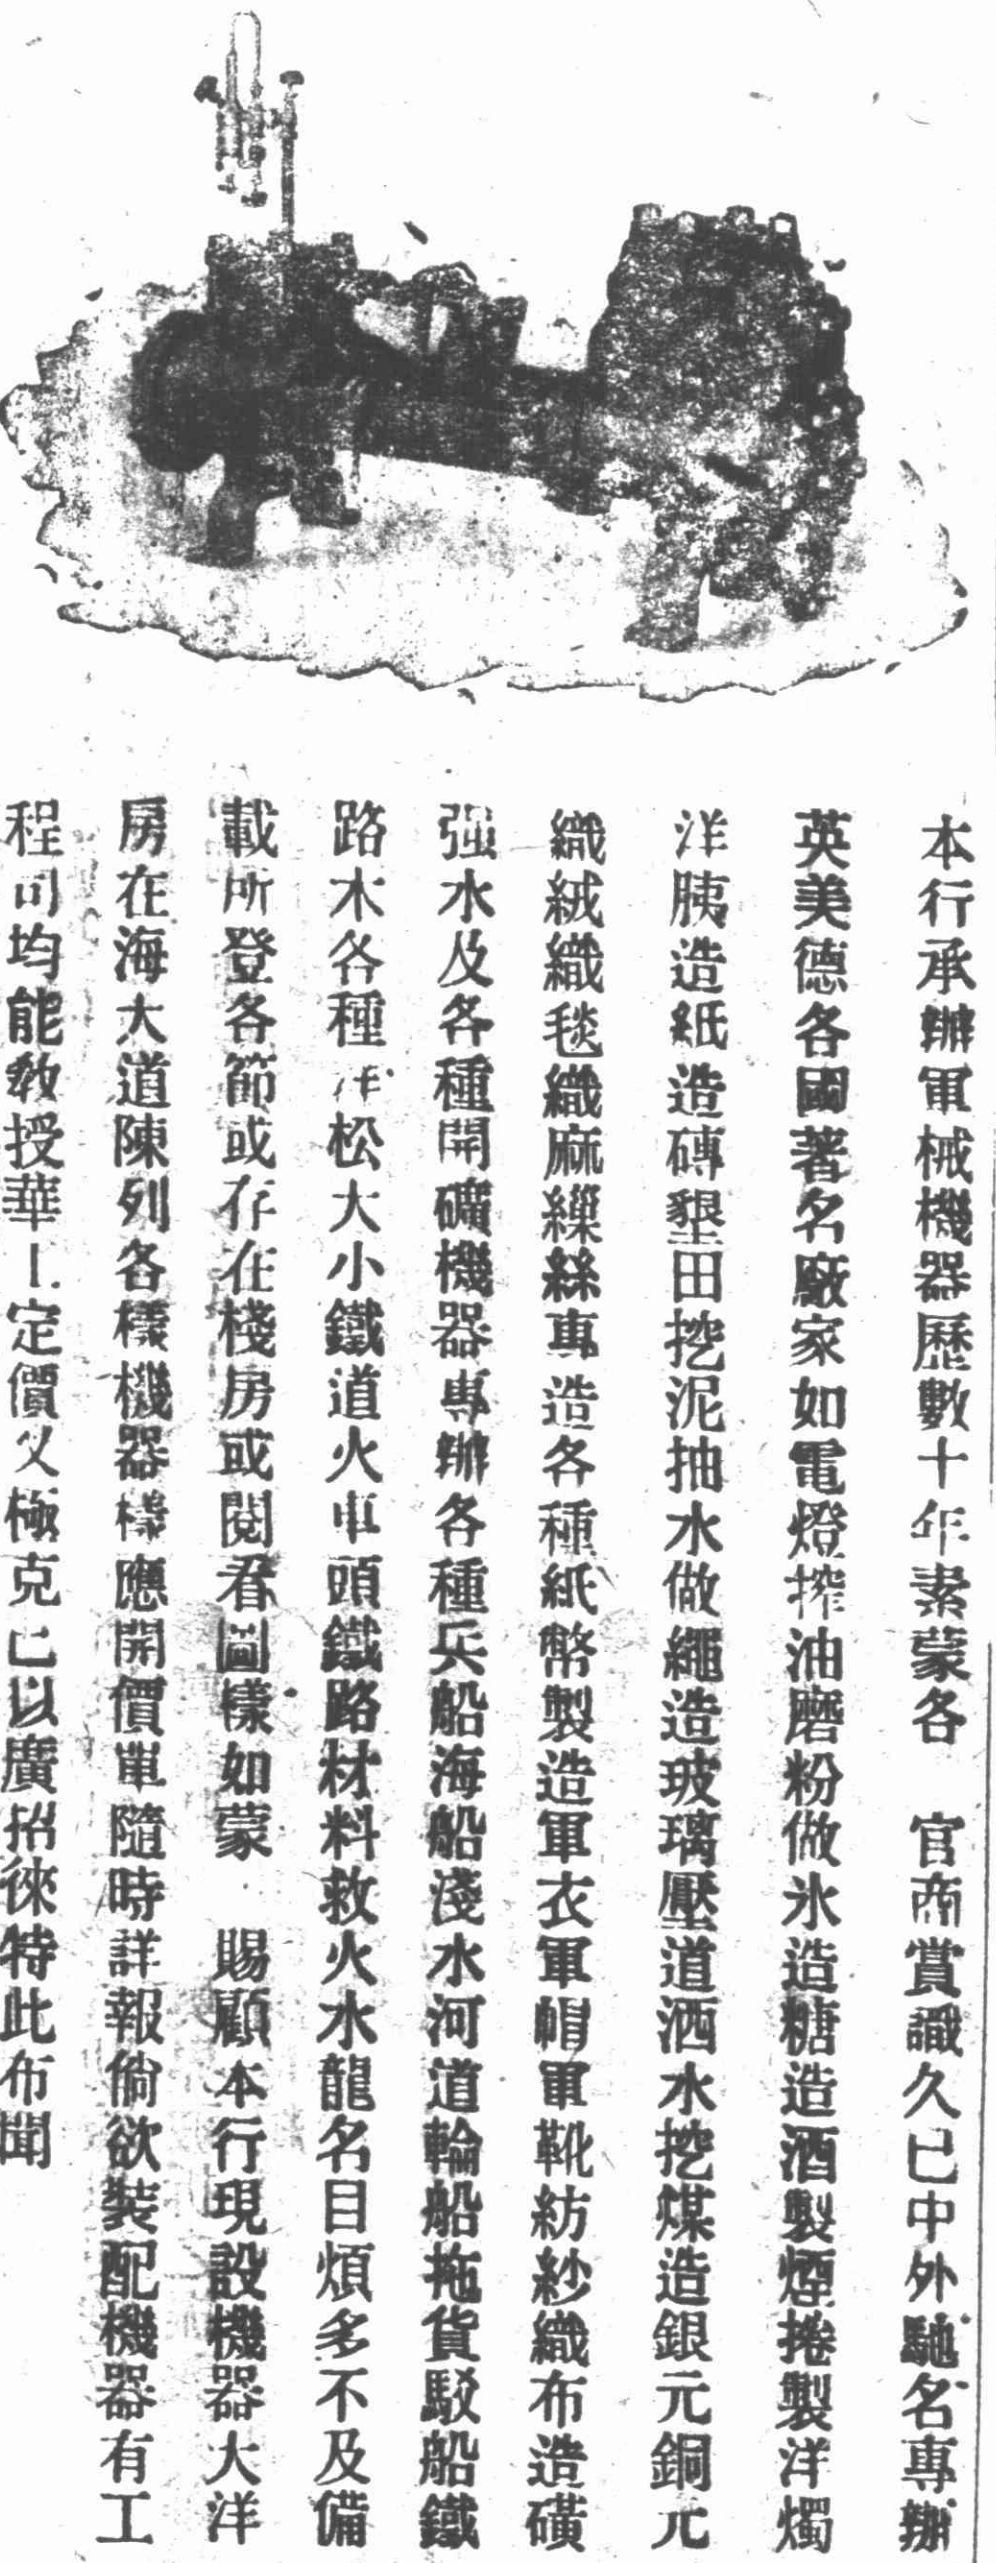 本行承辦軍械機器歷數十年素蒙各　官商賞識久已中外馳名專辦
英美德各國著名廠家如電燈搾油磨粉做氷造糖造酒製煙捲製洋燭
洋胰造紙造磚墾田挖泥抽水做繩造玻璃壓道洒水挖煤造銀元銅元
織絨織毯織麻繅絲專造各種紙幣製造軍衣軍帽軍靴紡紗織布造磺
强水及各種開礦機器專辦各種兵船海船淺水河道輪船拖貨駁船鐵
路木各種洋松大小鐵道火車頭鐵路材料救火水龍名目煩多不及備
載所登各節或存在棧房或閱看圖樣如蒙　賜顧本行現設機器大洋
房在海大道陳列各樣機器樣樣應開價單隨時詳報倘欲裝配機器有工
程司均能教授華工定價又極克己以廣招徠特此布聞